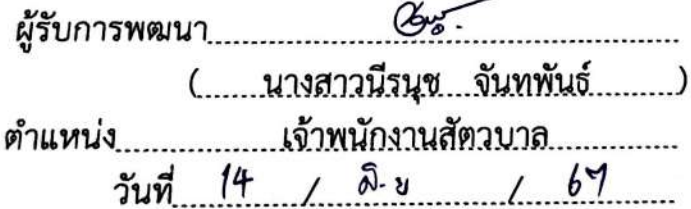 ผู้รับการพฒนา
( นางสาวนีรนุช จันทพันธ์ )
ตำแหน่ง เจ้าพนักงานสัตวบาล
วันที่ 14 / มิ.ย / 67